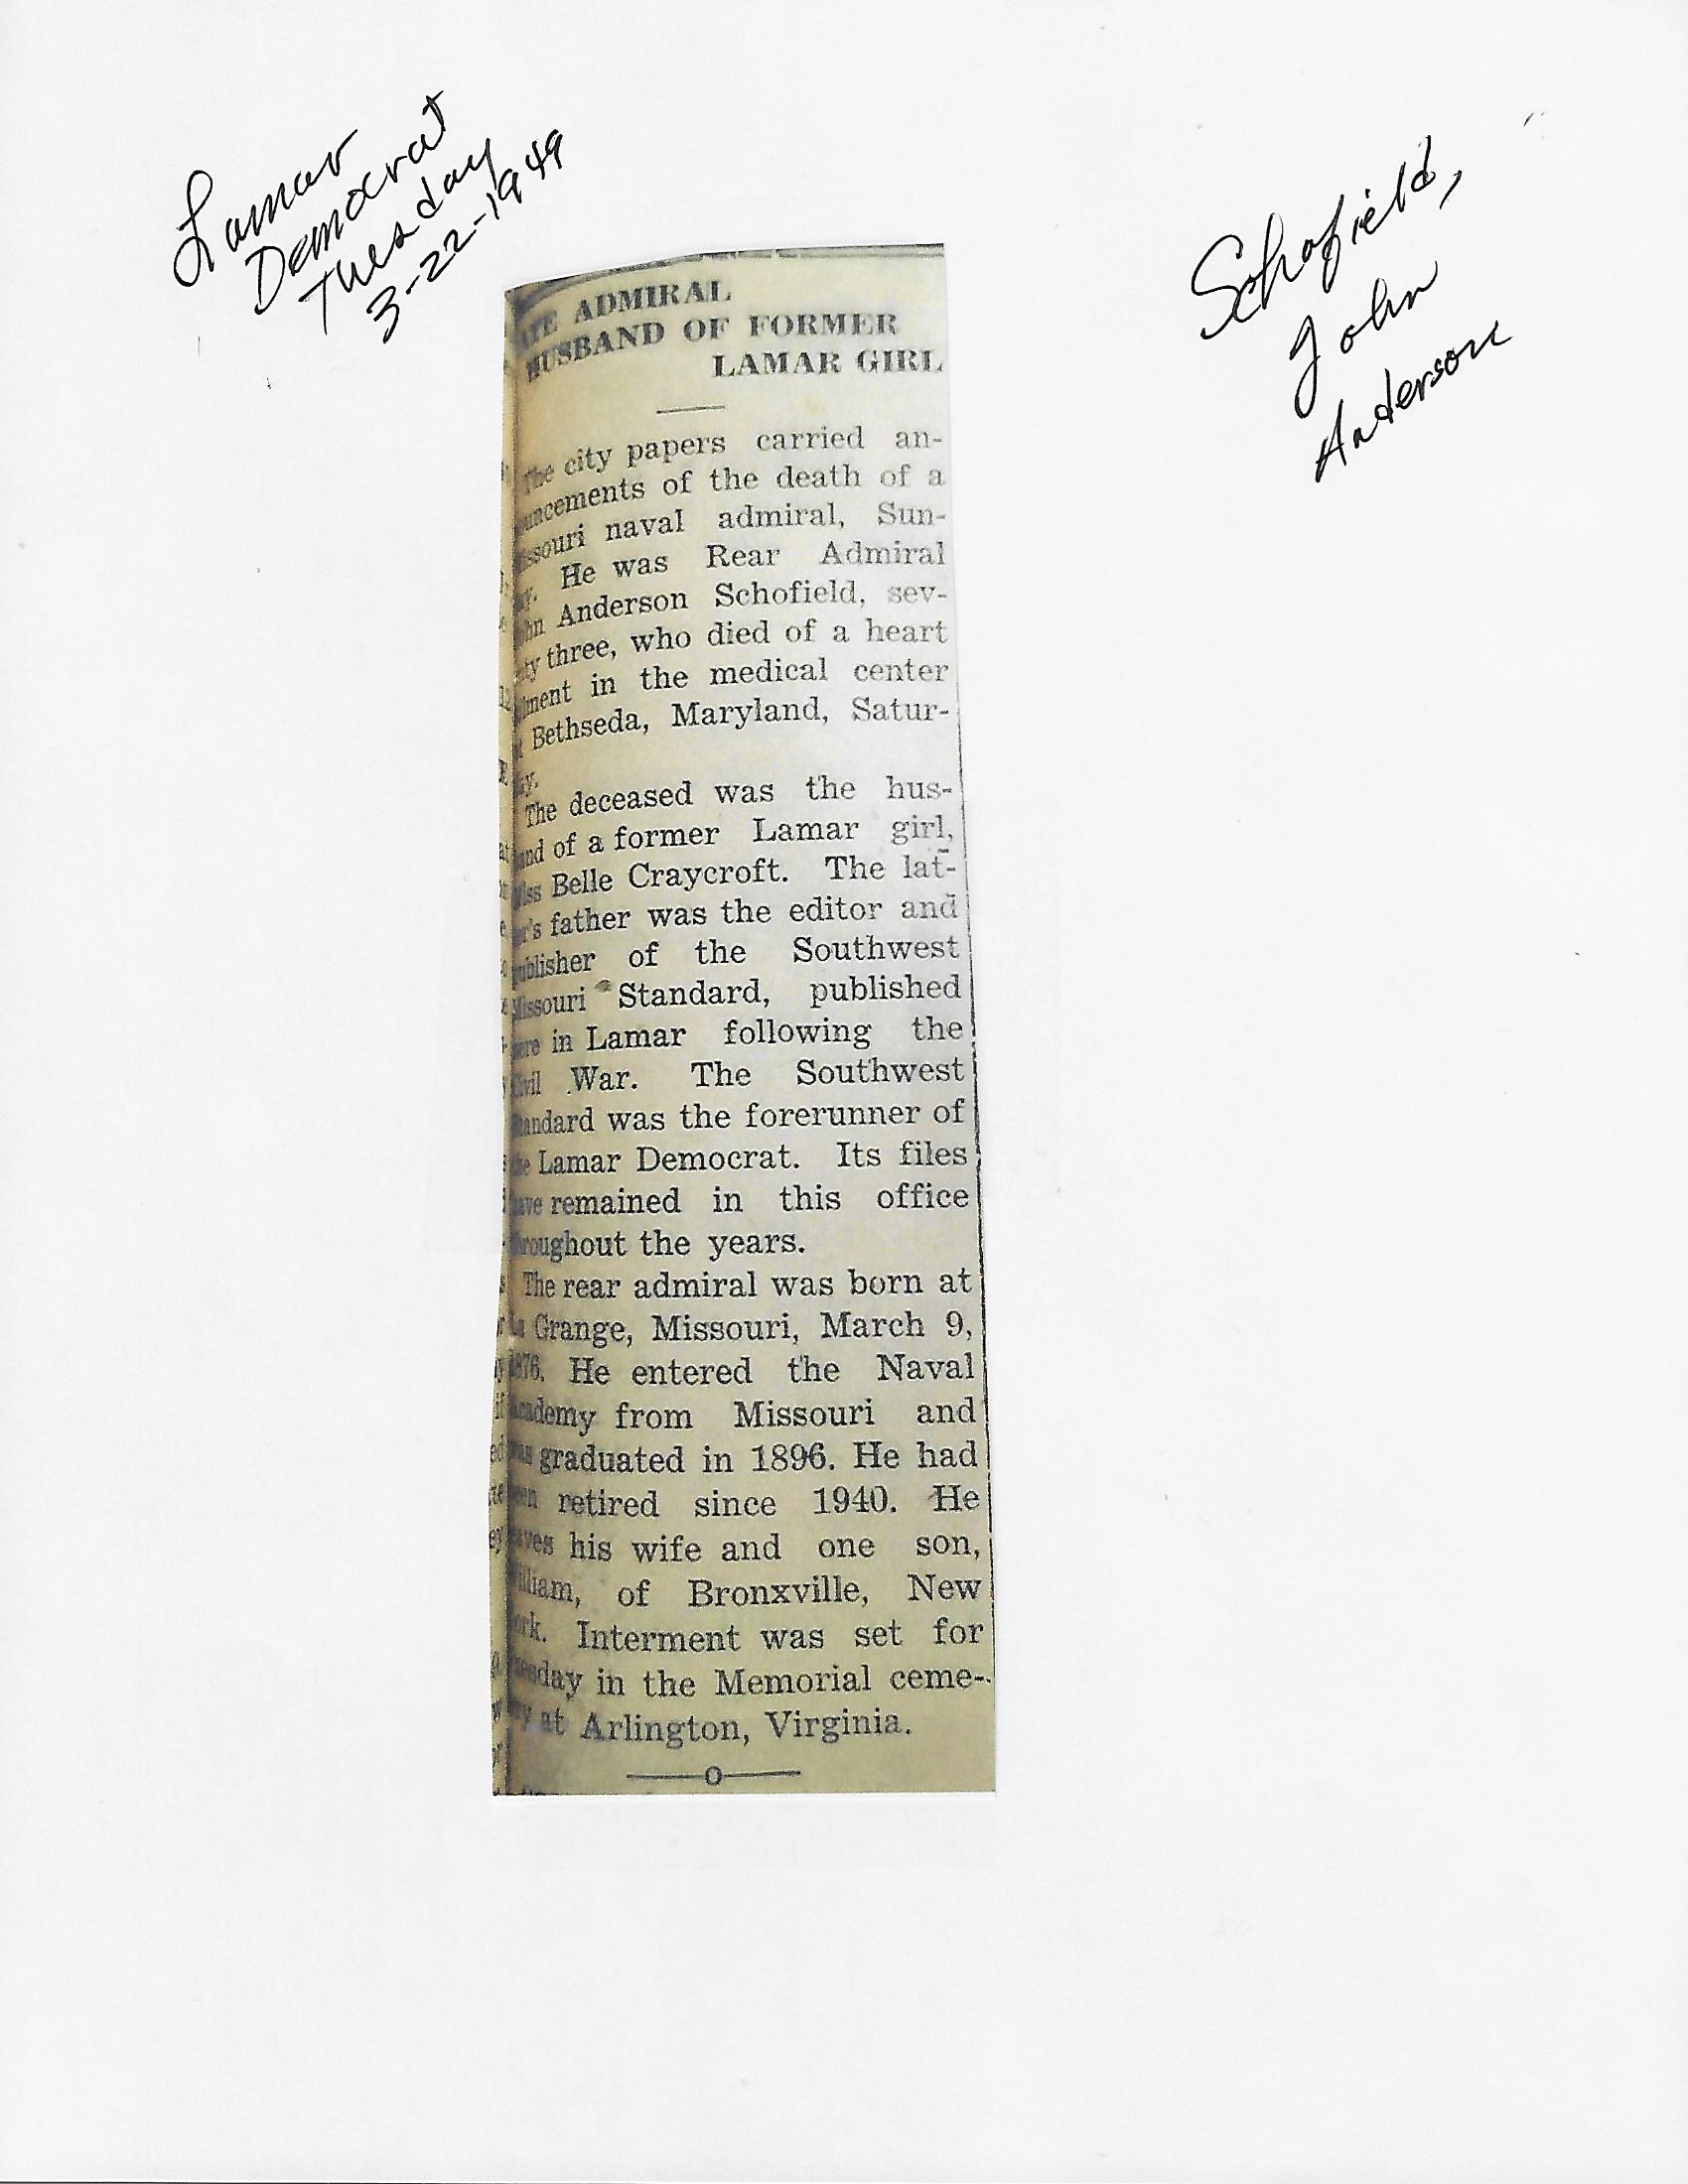 Lamar
Democrat
Tuesday
3-22-1949
Schofield,
John
Anderson
ATE ADMIRAL
HUSBAND OF FORMER
LAMAR GIRL
The city papers carried an-
ouncements of the death of a
issouri naval admiral, Sun-
ay. He was Rear Admiral
ohn Anderson Schofield, sev-
nty three, who died of a heart
ilment in the medical center
t Bethseda, Maryland, Satur-
ay.
The deceased was the hus-
and of a former Lamar girl,
Miss Belle Craycroft. The lat-
er's father was the editor and
publisher of the Southwest
Missouri Standard, published
here in Lamar following the
Civil War. The Southwest
tandard was the forerunner of
the Lamar Democrat. Its files
have remained in this office
throughout the years.
The rear admiral was born at
La Grange, Missouri, March 9,
1876. He entered the Naval
Academy from Missouri and
was graduated in 1896. He had
een retired since 1940. He
eaves his wife and one son,
illiam, of Bronxville, New
ork. Interment was set for
uesday in the Memorial ceme-
ery at Arlington, Virginia.
o